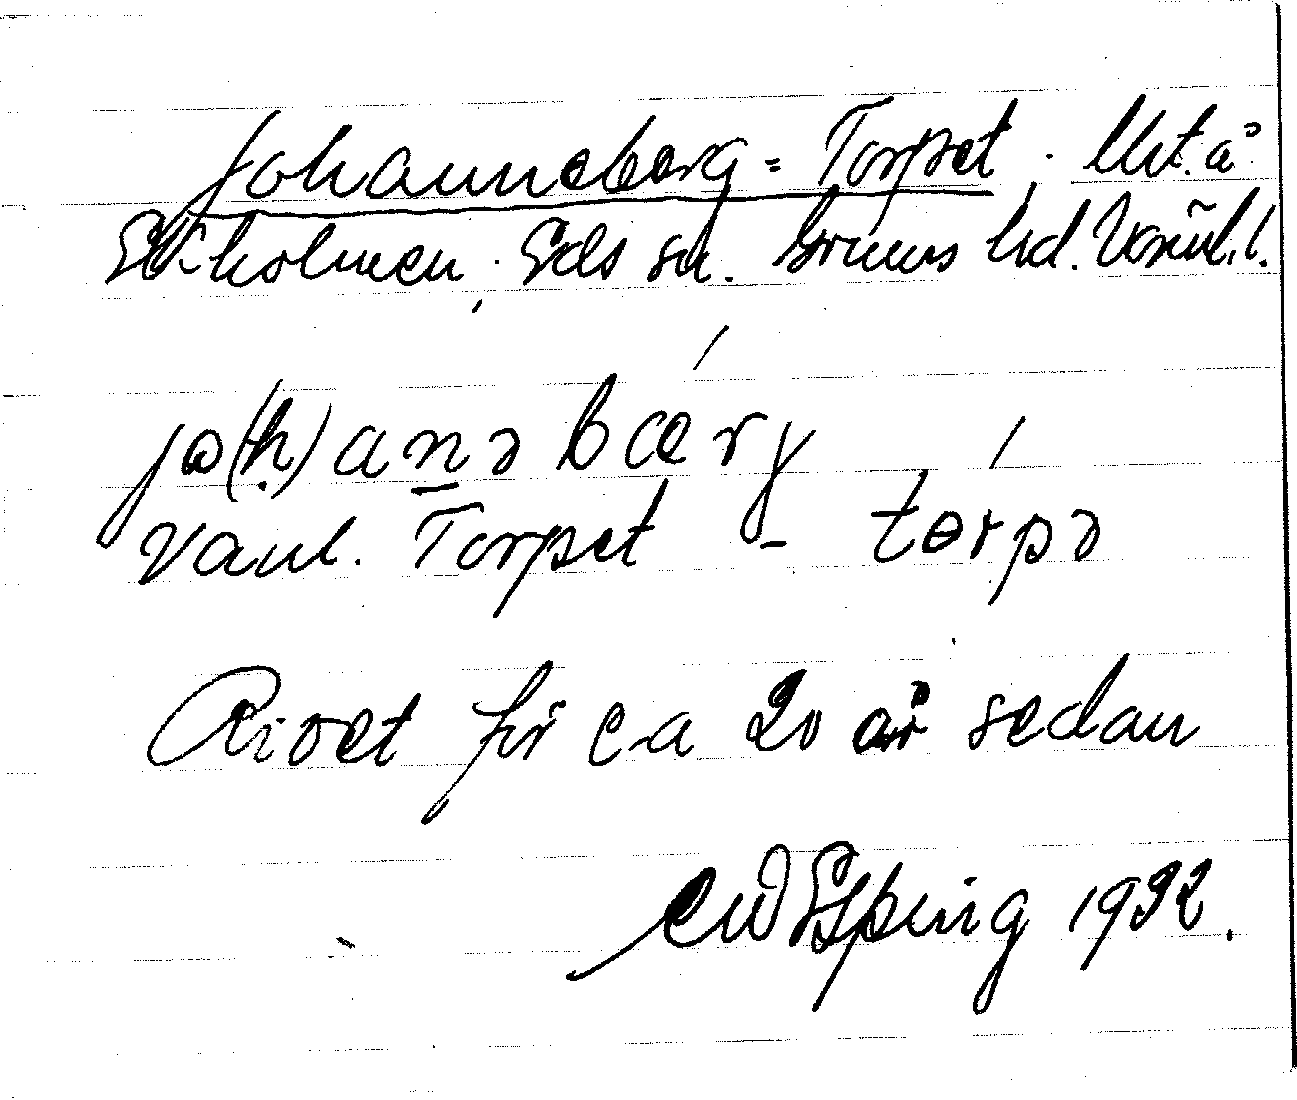 Johanneberg = Torpet. Utt. å
Ekholmen, Eds sn. Grums hd. Värml. l.
jo(h)anəbærγ
Vanl. Torpet - tɵrpə
Rivet för c-a 20 år sedan
CW Esping 1932.